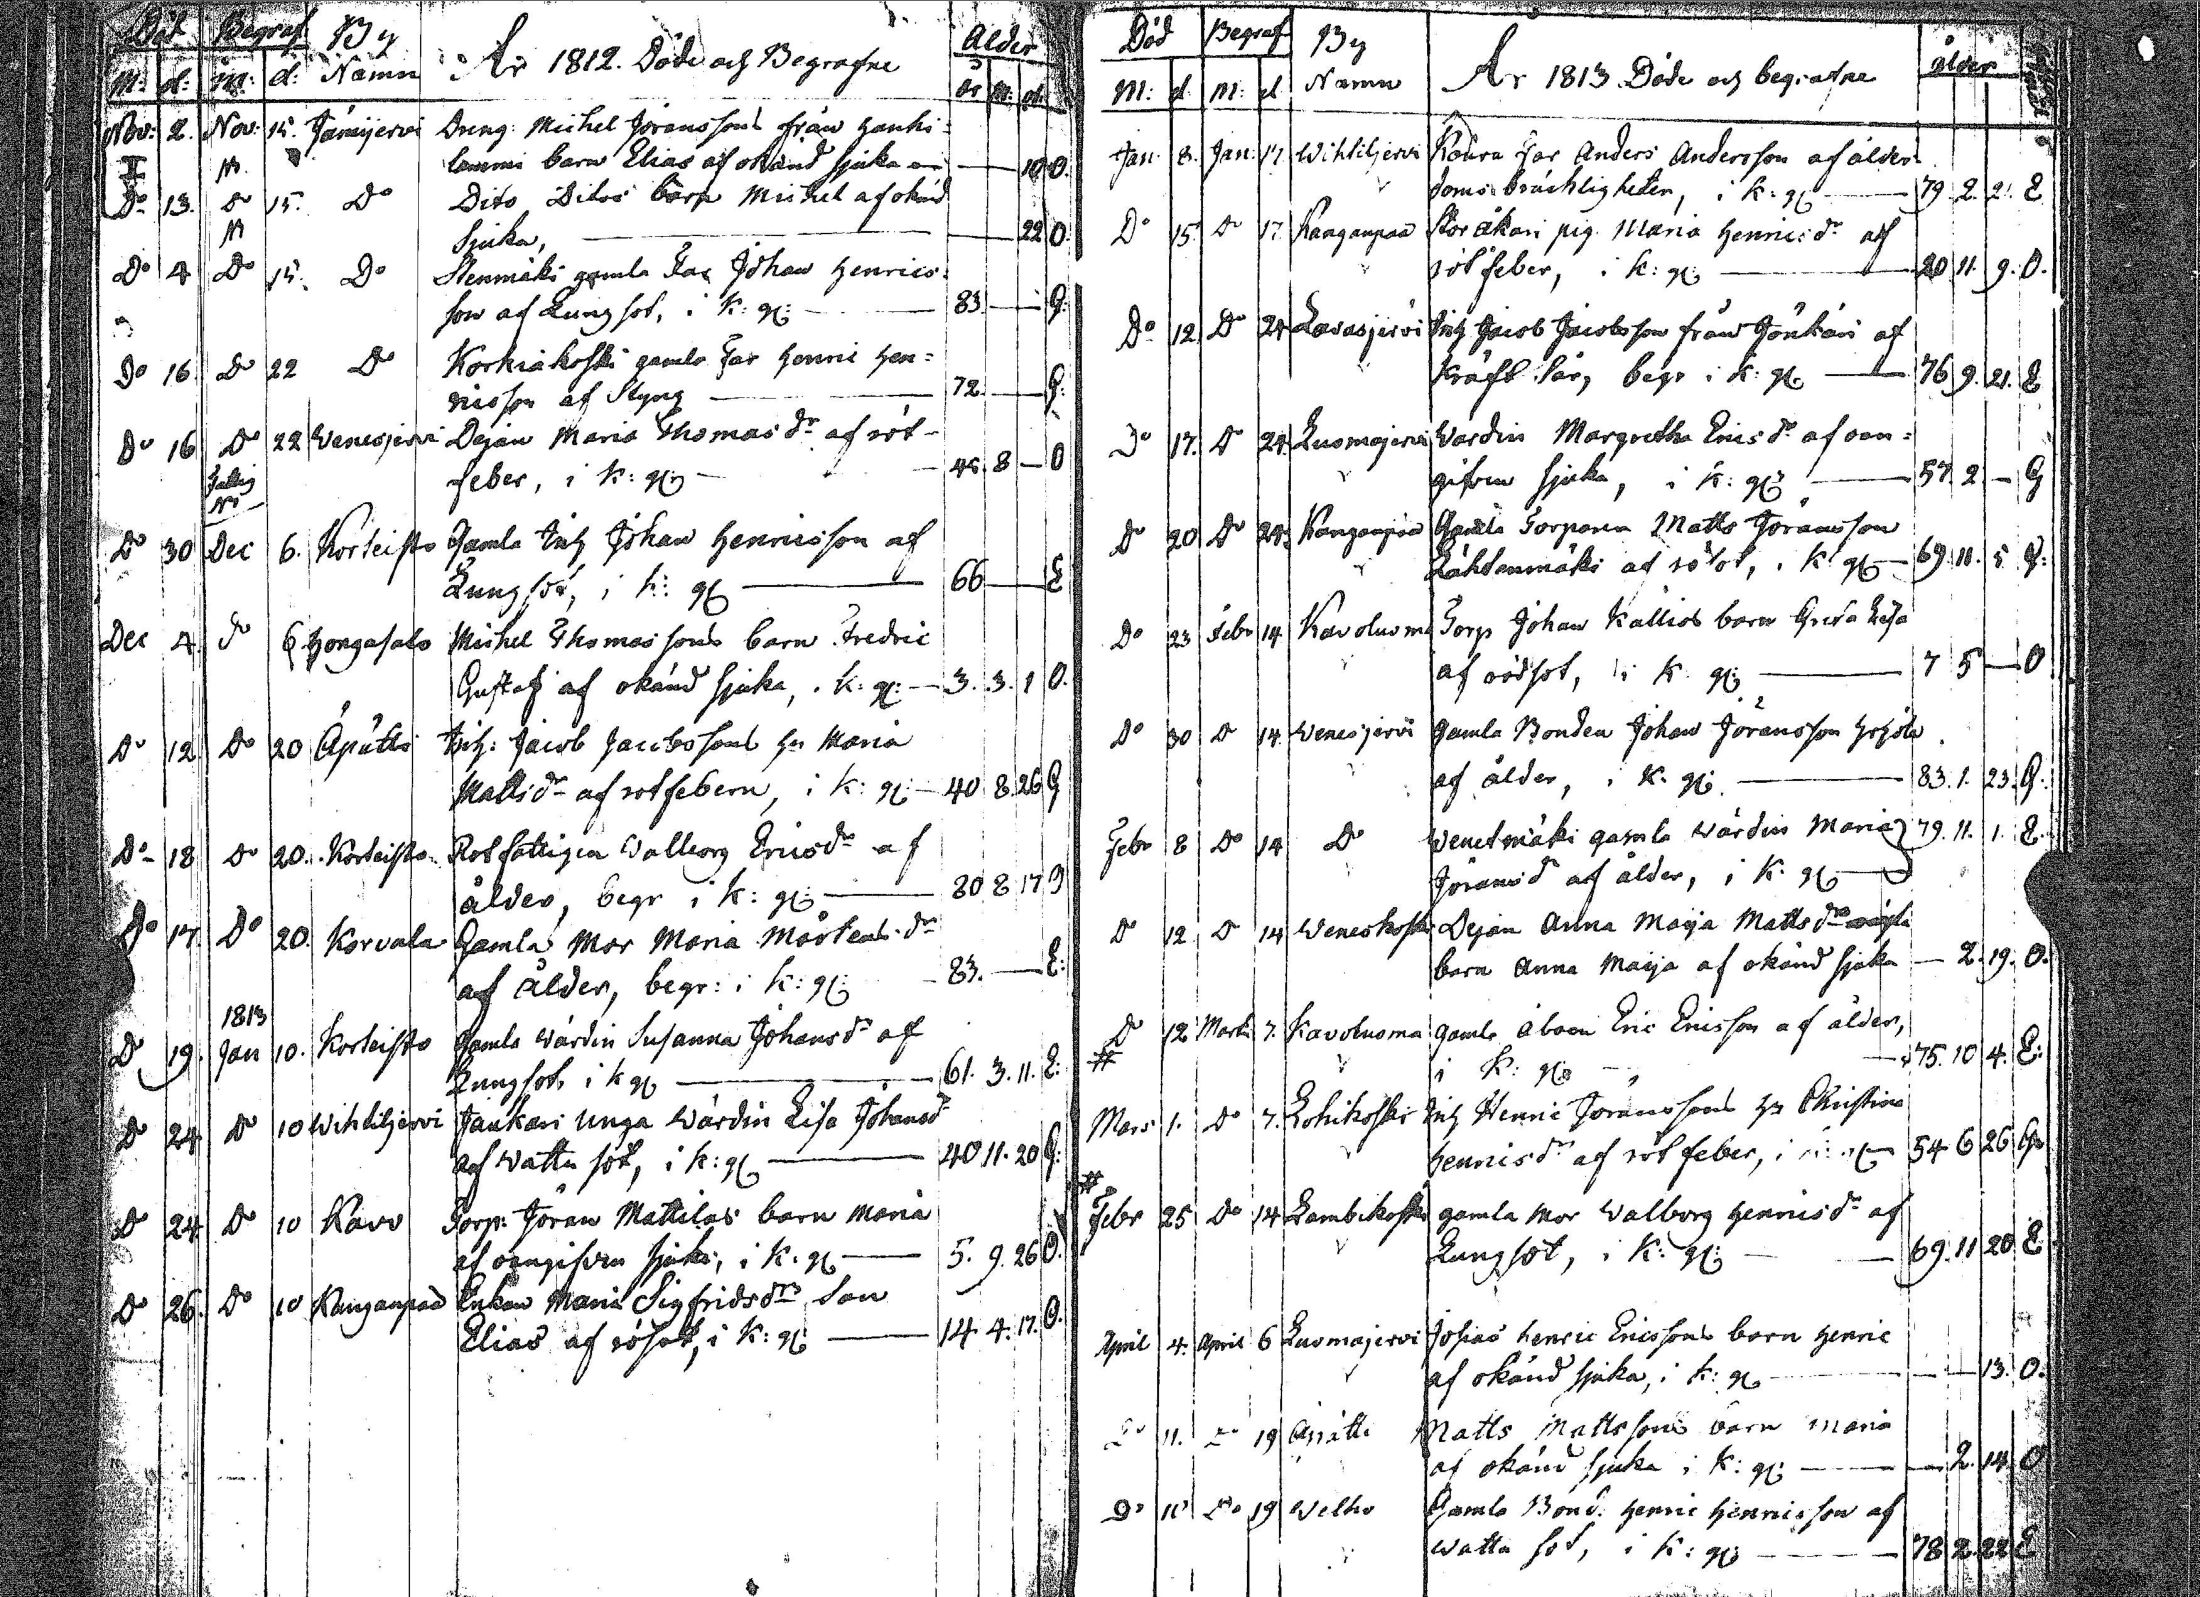 Död Begraf By År 1812. Döde och Begrafne Ålder
M: d: M: d: Namn år m: d:
Nov: 2. Nov: 15. Jämijervi Dreng: Michel Jöranssons från Hanhi-
lammi barn Elias af okänd sjuka — 10 O.
Do 13. Do 15. Do Dito Ditos barn Michel af okänd
sjuka, — 22 O.
Do 4 Do 15. Do Stenmäki gamla Far Johan Henrics-
son af Lungsot, i k: g: — 83. — G:
Do 16. Do 22 Do Korkiakoski gamla Far Henric Hen=
ricsson af Styng — 72. — G:
Do 16 Do 22 Wenesjervi Dejan Maria Thomasdr af röt-
feber, i k: g: — 8 — O
Fattig
Do 30 Dec 6. Korteisto Gamla Inh Johan Henricsson af
Lungsot, i k: g: — 66 — E
Dec 4. Do 6 Hongasalo Michel Thomassons barn Fredric
Gustaf af okänd sjuka, i k: g: — 3. 3. 1 O.
Do 12. Do 20 Äpätti Inh: Jacob Jacobssons hu Maria
Mattsdr af rötfebern, i k: g: — 40 8 26 G
Do 18 Do 20. Korteisto Rotfattigen Walborg Ericsdr af
ålder, begr i k: g: — 80 8 17 G
Do 17. Do 20. Korvala Gamla Mor Maria Mårtensdr
af ålder, begr: i k: g: — 83. — E:
1813
Do 19. Jan 10. Korteisto Gamla Wärdin Susanna Johansdr af
Lungsot, i k g: — 61. 3. 11. E:
Do 24 Do 10 Wihtiljervi Jaukari unga Wärdin Lisa Johansdr
af Wattu sot, i k: g: — 40 11. 20 G:
Do 24 Do 10 Kavo Torp: Jöran Mattilas barn Maria
af oangifven sjuka, i k: g: — 5. 9. 26 O.
Do 26. Do 10 Kanganpää Enkan Maria Sigfridsdrs Son
Elias af rösot, i k: g: — 14. 4. 17. O.
Död Begraf By År 1813 Döde och begrafne ålder
M: d. M: d Namn
Jan. 8. Jan: 17. Wihtiljervi Koura Far Anders Andersson af ålder-
doms bräckligheter, i k: g: — 79. 2. 2. E
Do 15. Do 17. Kanganpää Storåkari pig. Maria Henricsdr af
rötfeber, i k: g: — 20 11. 9. O.
Do 12 Do 24 Lavasjervi Inh Jacob Jacobsson från Jönkäri af
kräft sår, begr i k: g: — 76 9. 21. E
Do 17. Do 24. Luomajervi Wärdin Margretha Ericsdr af oan=
gifven sjuka, i k: g: — 57. 2 — G
Do 20 Do 24. Kanganpää Gamla Torparen Matts Jöransson
Lähtenmäki af rösot, i k: g: — 69. 11. 5 G:
Do 23 Febr 14. Kavoluoma Torp Johan Kallios barn Greta Lisa
af rödsot, i k g: — 7 5 — O
Do 30 Do 14. Wenesjervi Gamla Bonden Johan Jöransson
af ålder, i k. g: — 83. 1. 23. G.
Febr 8 Do 14 Do Wenetmäki gamla Wärdin Maria 79. 11. 1. E.
Jöransd af ålder, i k. g: —
Do 12 Do 14 Weneskoski Dejan Anna Maija Mattsdr oägta
barn Anna Maija af okänd sjuka — 2. 19. O.
Do 12 Marti 7. Kavoluoma Gamla åboen Eric Ericsson af ålder,
# i k: g: — 75. 10 4. E:
Mars 1. Do 7. Lohikoski Inh Henric Jöranssons hu Christina
Henricsdr af rötfeber, i k: g: — 54 6 26 G
#
Febr 25 Do 14 Lambikoski gamla Mor Walborg Henricsdr af
Lungsot, i k: g: — 69. 11 20 E
April 4. April 6 Luomajervi Josias Henric Ericssons barn Henric
af okänd sjuka, i k: g — 13. O.
Do 11. Do 19 Äpätti Matts Mattssons barn Maria
af okänd sjuka i k: g: — 2. 14. O
Do 11 Do 19 Welho Gamla Bond. Henric Henricsson af
Wattu sot, i k: g: — 78 2. 22 E